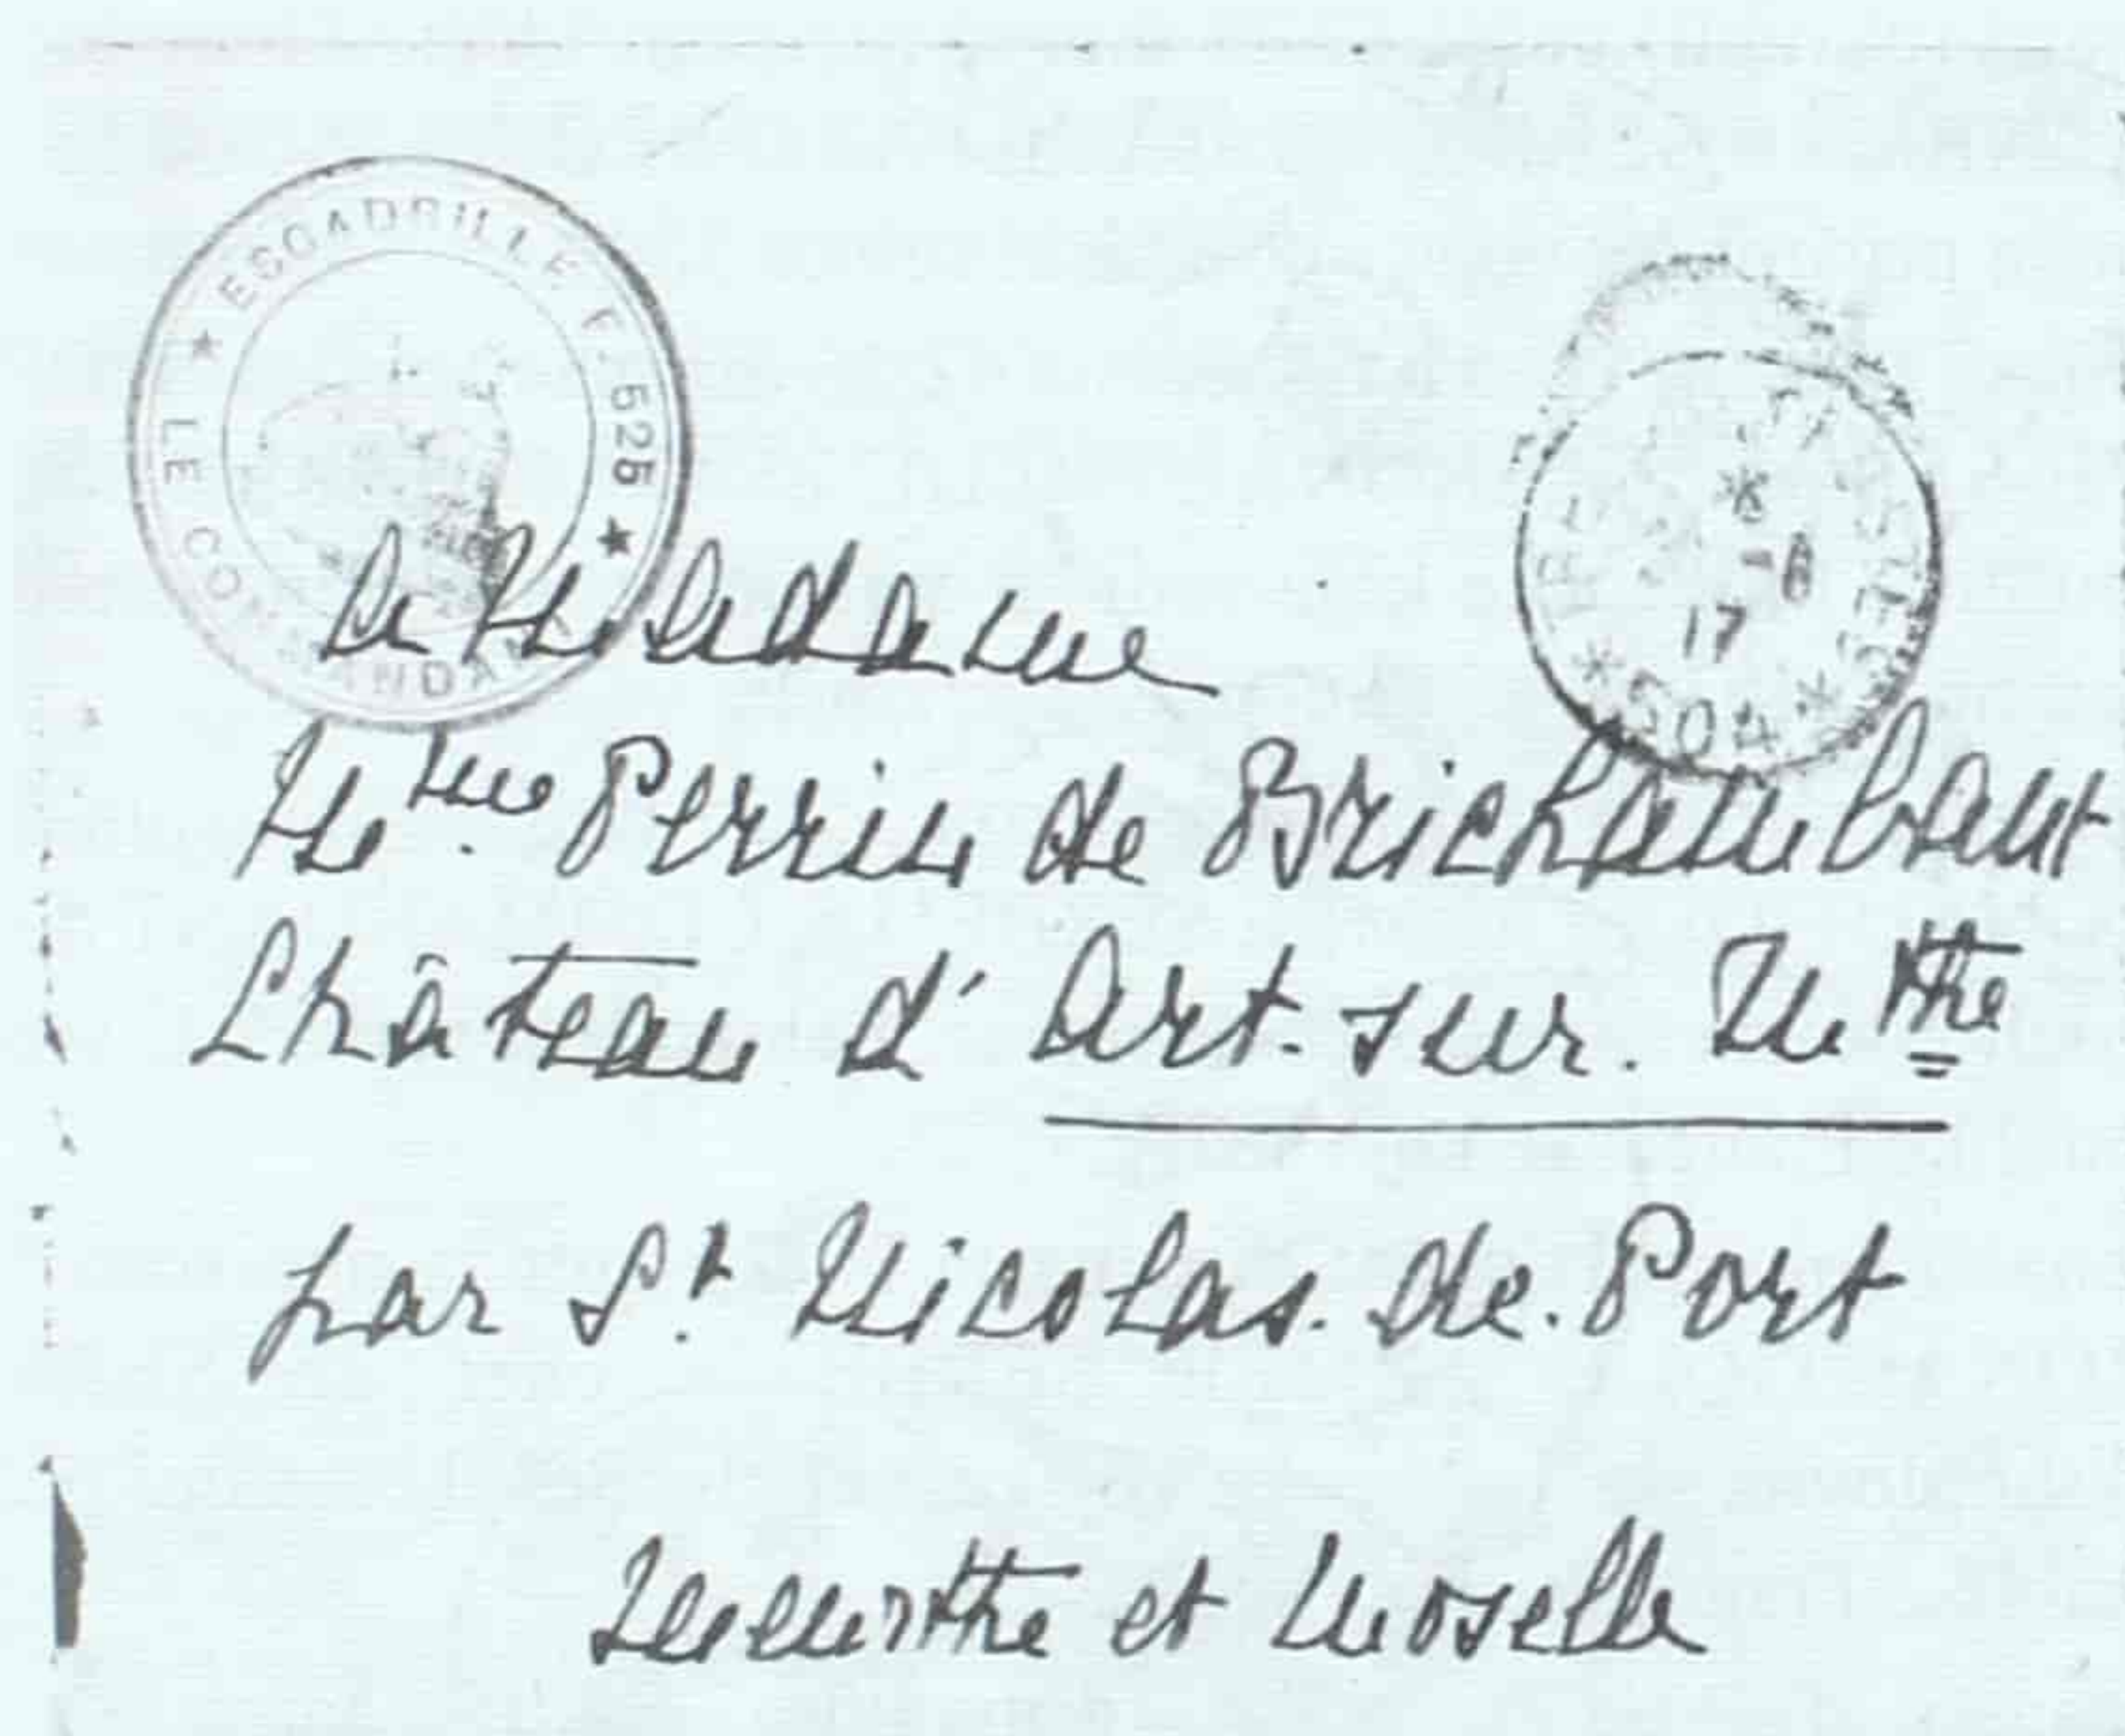 ESCADRILLE F. 525
LE COMMANDA
TRÉ
*
-8
17
*504*
A Madame
Mme Perrin de Brichambaut
Château d'Art-sur-Mthe
par St Nicolas-de-Port
Meurthe et Moselle